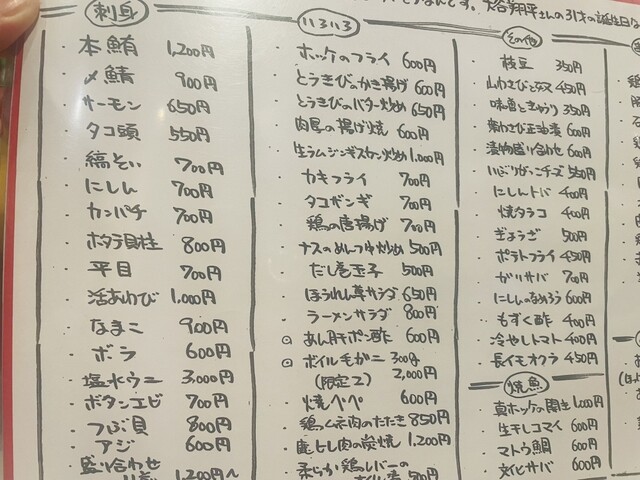 刺身
本鮪 1,200円
〆鯖 900円
サーモン 650円
タコ頭 550円
縞そい 700円
にしん 700円
カンパチ 700円
ホタテ貝柱 800円
平目 700円
活あわび 1,000円
なまこ 900円
ボラ 600円
塩水ウニ 3,000円
ボタンエビ 700円
つぶ貝 800円
アジ 600円
盛り合わせ
1,200円〜
いろいろ
ホッケのフライ 600円
とうきびのかき揚げ 600円
とうきびのバター炒め 650円
肉厚の揚げ焼 600円
生ラムジンギスカン炒め 1,000円
カキフライ 700円
タコザンギ 700円
鶏の唐揚げ 700円
ナスのめんつゆ炒め 500円
だし巻玉子 500円
ほうれん草サラダ 650円
ラーメンサラダ 800円
あん肝ポン酢 600円
ボイル毛がに 300g
(限定2) 2,000円
焼ベベ 600円
鶏ムネ肉のたたき 850円
鹿ヒレ肉の炭焼 1,200円
柔らか鶏レバーの
500円
大谷翔平さんの31才の誕生日
その他
枝豆 350円
山わさび 450円
味噌ときゅうり 350円
山わさび正油漬 600円
漬物盛り合わせ 600円
いぶりがっこチーズ 550円
にしんトバ 400円
焼タラコ 400円
ぎょうざ 500円
ポテトフライ 450円
ガリサバ 700円
にしんのなめろう 600円
もずく酢 400円
冷やしトマト 400円
長イモオクラ 450円
焼魚
真ホッケの開き 1,000円
生干しコマイ 600円
マトウ鯛 600円
文化サバ 600円